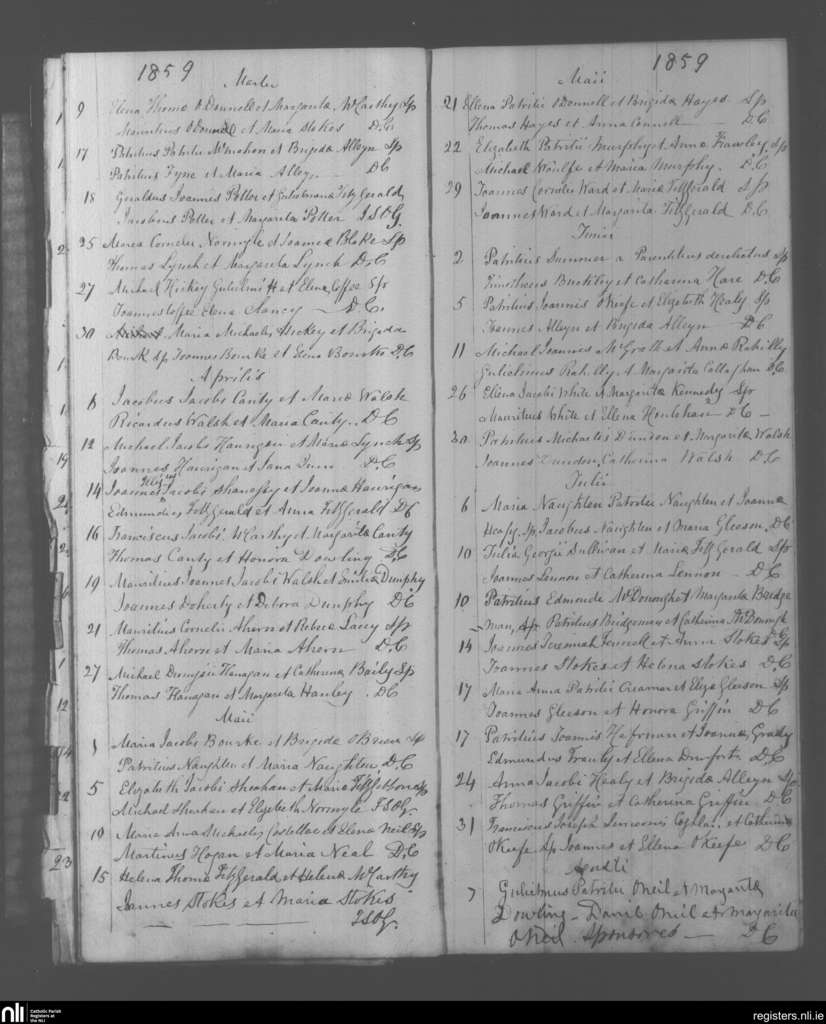 1859
Martii
9 Elena Thoma O Donnell et Margarita McCarthy Sp
Mauritius O Donnell et Maria Stokes D.C
17 Patritius Patritii McMahon et Brigida Alleyn Sp
Patritius Fyne et Maria Alleyn D C
18 Geraldus Joannes Potter et Fitzgerald
Jacobus Potter et Margarita Potter J S O G.
25 Maria Cornelii Normyle et Joanna Blake Sp
Thomas Lynch et Margarita Lynch D.C
27 Michael Hickey Gulielmi H et Elena Coffee Sp
Joannes Coffee Elena Clancy D.C.
30 Maria Michaelis Hickey et Brigida
Bourk Sp Joannes Bourke et Elena Bourke D.C
Aprilis
8 Jacobus Jacobi Canty et Maria Walsh
Ricardus Walsh et Maria Canty. D.C
12 Michael Jacobi Hanrigan et Maria Lynch Sp
Joannes Hanrigan et Jana Quin D.C
14 Joannes Jacobi Shanahy et Joanna Hanrigan
Edmundus FitzGerald et Anna FitzGerald D.C
16 Franciscus Jacobi McCarthy et Margarita Canty
Thomas Canty et Honora Dowling D.C
19 Mauritius Joannes Jacobi Walsh et Dunphy
Joannes Doherty et Debora Dunphy D.C
21 Mauritius Cornelii Ahern et Rebeca Lacey Sp
Thomas Ahern et Maria Ahern D.C
27 Michael Flanagan et Catherina Baily Sp
Thomas Flanagan et Margarita Hanley. D C
Maii
1 Maria Jacobi Bourke et Brigida O Brien Sp
Patritius Naughten et Maria Naughten D.C
5 Elizabeth Jacobi Sheehan et Maria Sp
Michael Sheehan et Elizabeth Normyle J.S.O.G.
10 Maria Anna Michaelis Costelloe et Elena Neil Sp
Martinus Hogan et Maria Neal D.C
15 Helena Thoma FitzGerald et Helena McCarthy
Joannes Stokes et Maria Stokes
J.S.O.G.
1859
Maii
21 Ellena Patritii O Donnell et Brigida Hayes Sp
Thomas Hayes et Anna Connell D.C
22 Elizabeth Patritii Murphy et Anna Frawley Sp
Michael Woulfe et Maria Murphy. D.C
29 Joannes Cornelii Ward et Maria FitzGerald Sp
Joannes Ward et Margarita FitzGerald D.C
Junii
2 Patritius Summer a Parentibus derelictus Sp
Timotheus Buckley et Catherina Hare D.C
5 Patritius Joannis O Keefe et Elizabeth Healy Sp
Joannes Alleyn et Brigida Alleyn D.C
11 Michael Joannes McGrath et Anna Rahilly
Gulielmus Rahilly et Margarita Callaghan D.C
26 Elena Jacobi White et Margarita Kennedy Sp
Mauritius White et Ellena Houlihan D C
30 Patritius Michaelis Dundon et Margarita Walsh
Joannes Dundon, Catherina Walsh D.C
Julii
6 Maria Naughten Patritii Naughten et Joanna
Heafy Sp. Jacobus Naughten et Maria Gleeson. D.C
10 Julia Georgii Sullivan et Maria FitzGerald Sp
Joannes Lennon et Catherina Lennon D.C
10 Patritius Edmundi McDonough et Margarita Bridge
man, Sp. Patritius Bridgeman et Catherina McDonough
D C
14 Joannes Jeremiah Fennell et Anna Stokes Sp
Joannes Stokes et Helena Stokes D.C
17 Maria Anna Patritii Creamer et Eliza Gleeson Sp
Joannes Gleeson et Honora Griffin D C
17 Patritius Joannis Heffernan et Joanna Grady
Edmundus Frawly et Ellena Danforth D.C
24 Anna Jacobi Healy et Brigida Alleyn Sp
Thomas Griffin et Catherina Griffin D.C
31 Franciscus Joseph Coghlan et Catherina
O Keefe Sp Joannes et Ellena O Keefe D C
7 Gulielmus Patritii O Neil et Margarita
Dowling - Daniel O Neil et Margarita
O Neil Sponsores — D C
nli
Catholic Parish
Registers at
the NLI
registers.nli.ie